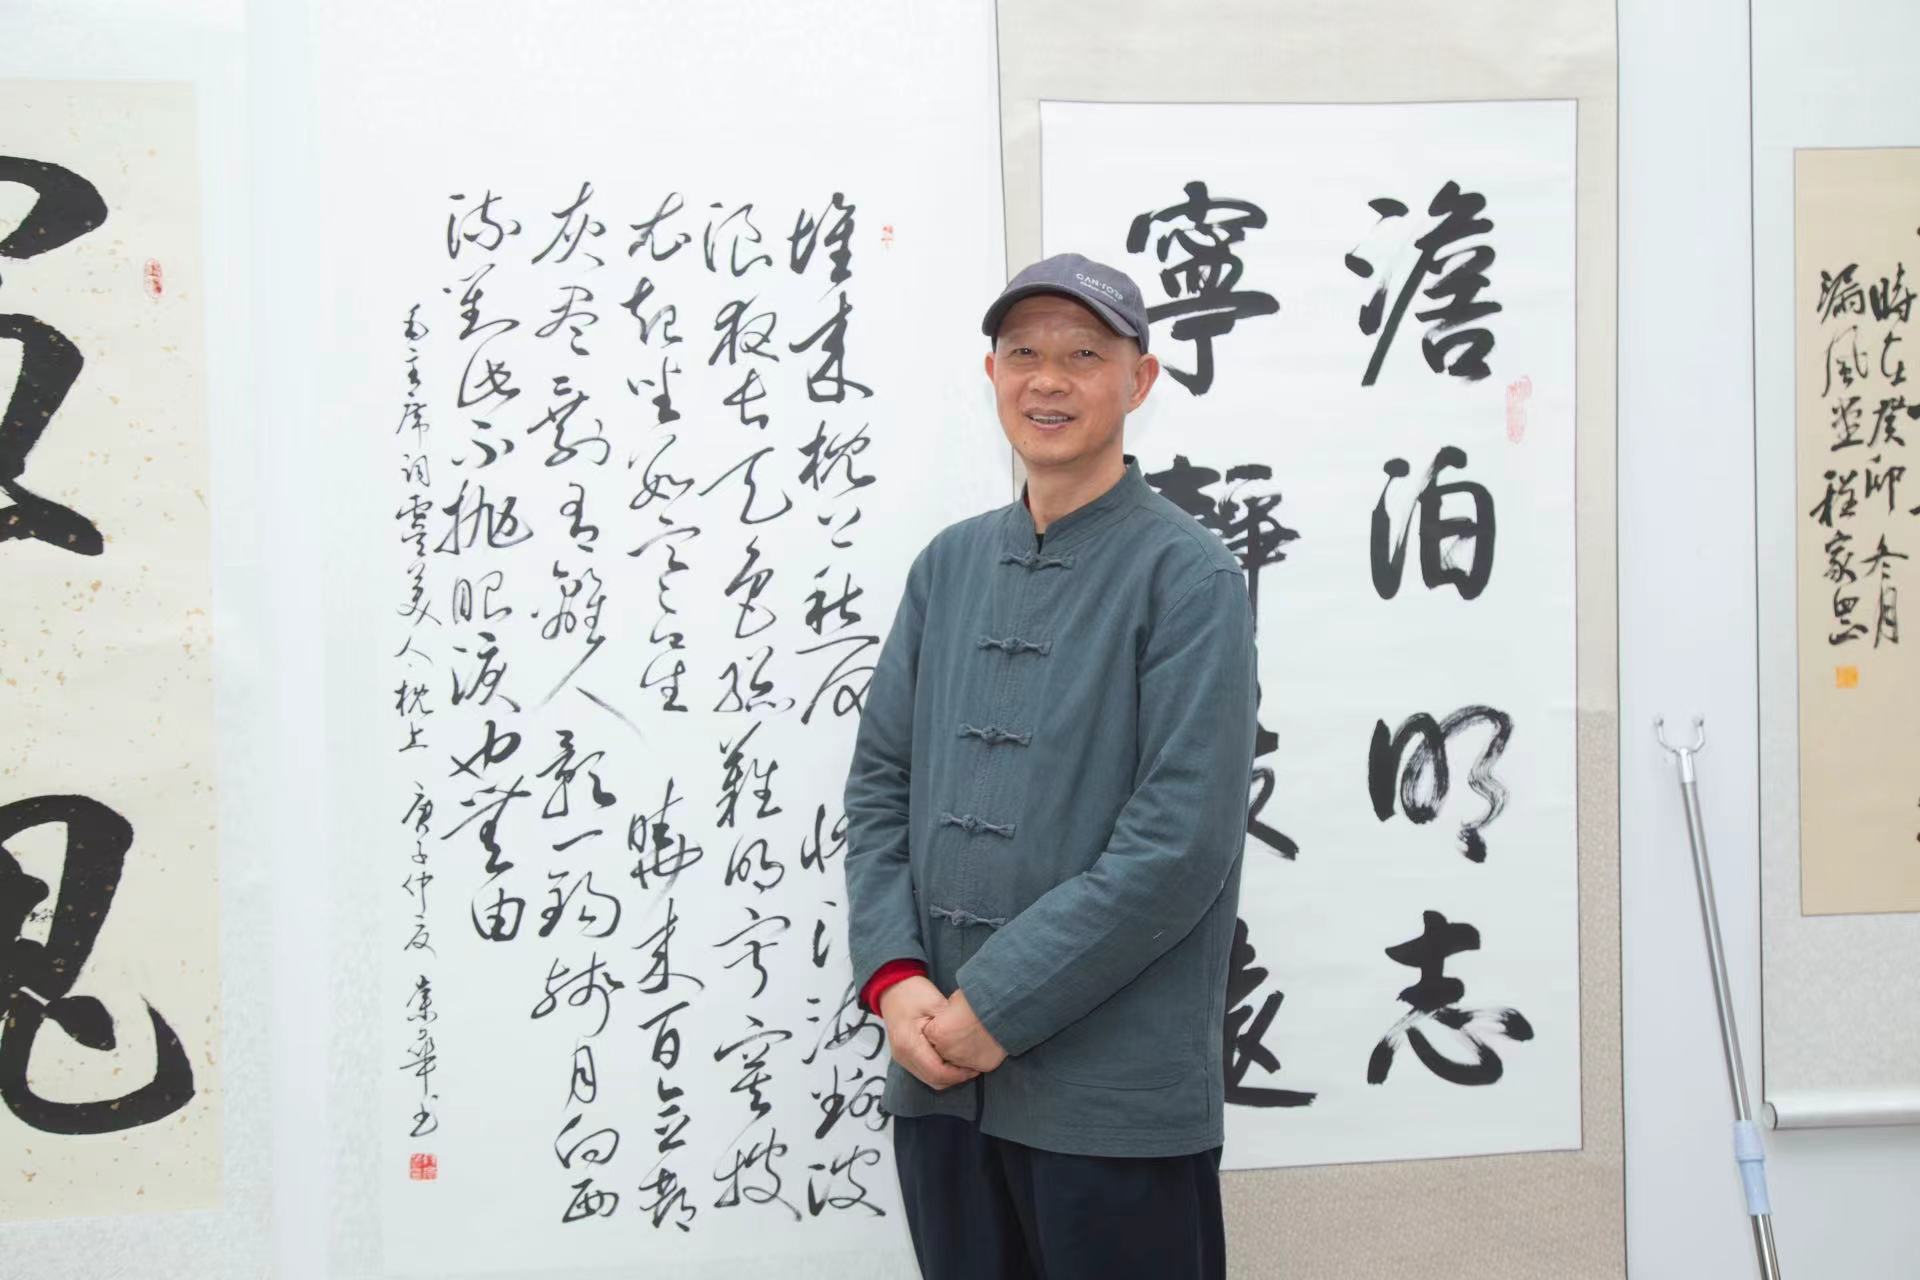 時在癸卯冬月
漏風堂程家
澹泊明志
寧靜致遠
堆来枕上愁何状江海翻波
浪夜长天色総難明寂寞披
衣起坐数寒星 晓来百念都
灰尽剩有離人影一钩残月向西
流对此不抛眼淚也無由
毛主席词虞美人枕上 庚子仲夏 業華书